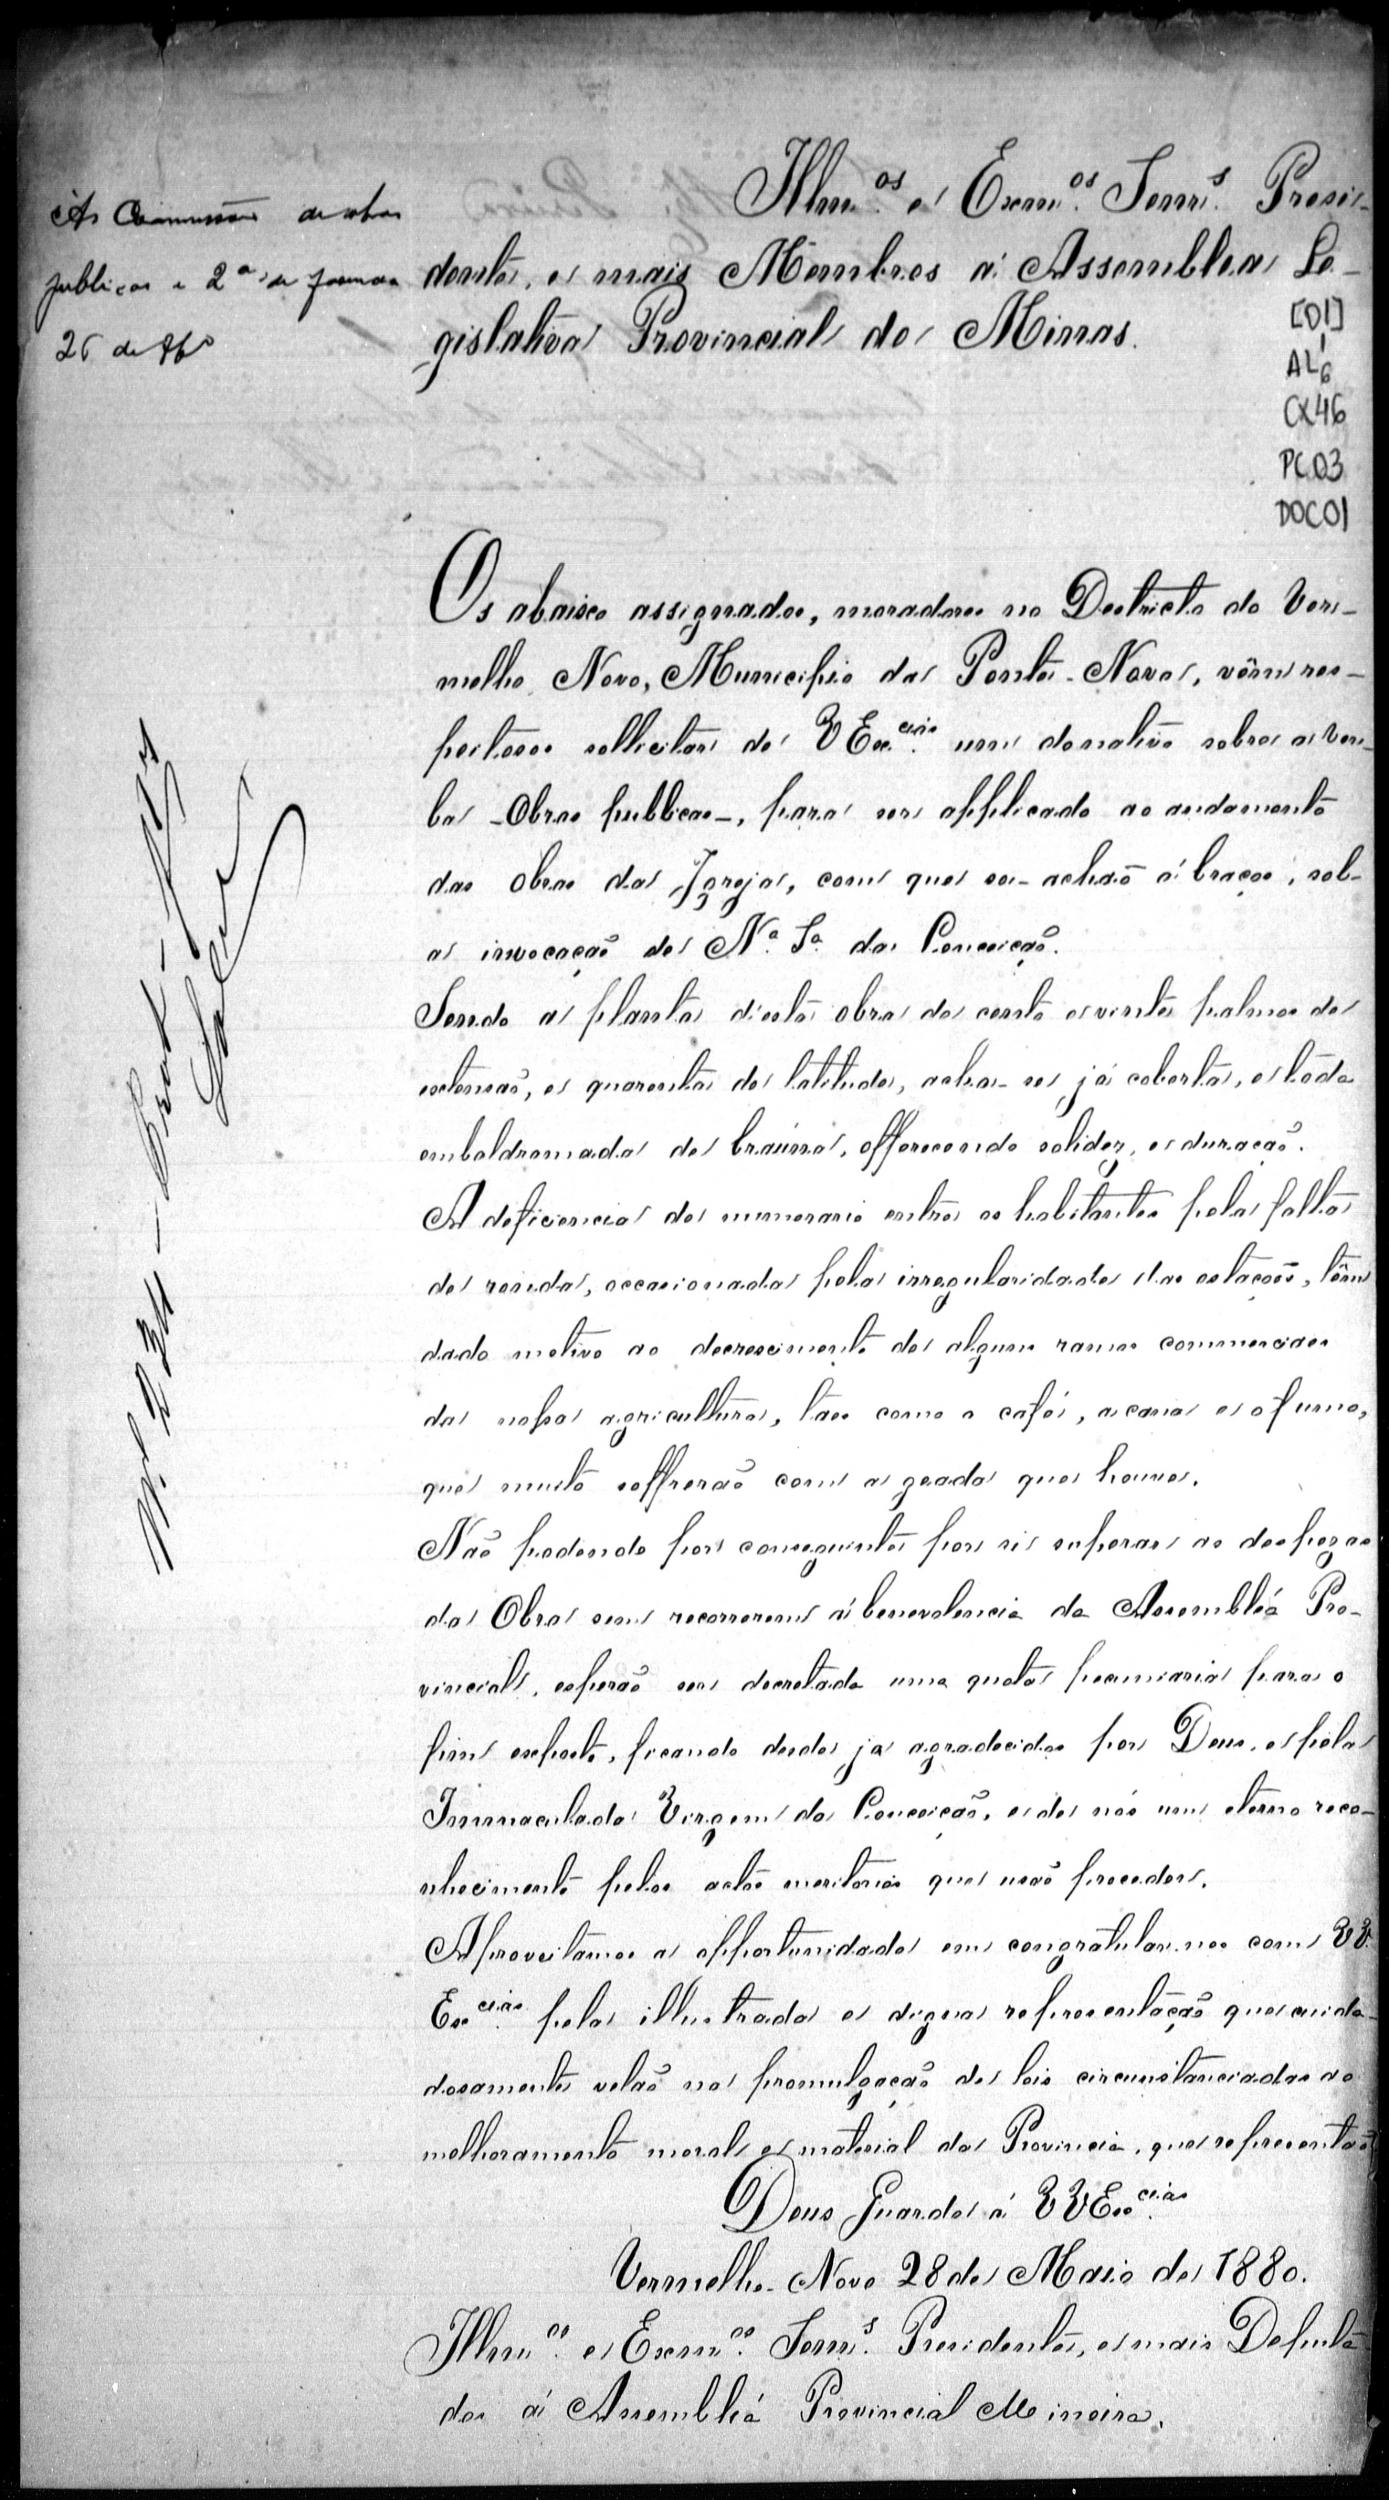 Illm.os e Exm.os Senr.s Presi-
dente, e mais Membros á Assemblea Le-
gislativa Provincial de Minas.
Ás Commissões de obras
publicas e 2ª de
26 de
[01]
AL6
CX46
PC03
DOC01
Os abaixo assignados, moradores no Destricto do Ver-
melho Novo, Municipio da Ponte-Nova, vêm res-
peitosos sollicitar de VExcias um donativo sobre a ver-
ba -Obras publicas-, para ser applicado ao andamento
das obras da Igreja, com que se-achão á braços, sob-
a invocação de N.ª S.ª da Conceição.
Sendo a planta d'esta obra de cento e vinte palmos de
extensão, e quarenta de latitude, acha-se já coberta, e toda
embaldramada de braúna, offerecendo solidez, e duração.
A deficiencia de numerario entre os habitantes pela falta
de renda, occasionada pela irregularidade das estações, têm
dado motivo ao decrescimento de alguns ramos commerciaes
da nossa agricultura, taes como o café, a cana e o fumo,
que muito soffrerão com a geada que houve.
Não podendo por conseguinte por si superar as despezas
da Obra sem recorrerem á benevolencia da Assembléa Pro-
vincial, esperão ser decretada uma quota pecuniaria para o
fim exposto, ficando desde já agradecidos por Deus, e pela
Immaculada Virgem da Conceição, e de nós um eterno reco-
nhecimento pelos actos meritorios que usão proceder.
Aproveitamos a opportunidade em congratular-nos com VV.
Excias pela illustrada e digna representação que cuida-
dosamente velão na promulgação de leis circunstanciadas ao
melhoramento moral e material da Provincia, que representão
Deus Guarde á VVExcias
Vermelho-Novo 28 de Maio de 1880.
Illm.os e Exm.os Senr.s Presidente, e mais Deputa-
dos á Assembléa Provincial Mineira.